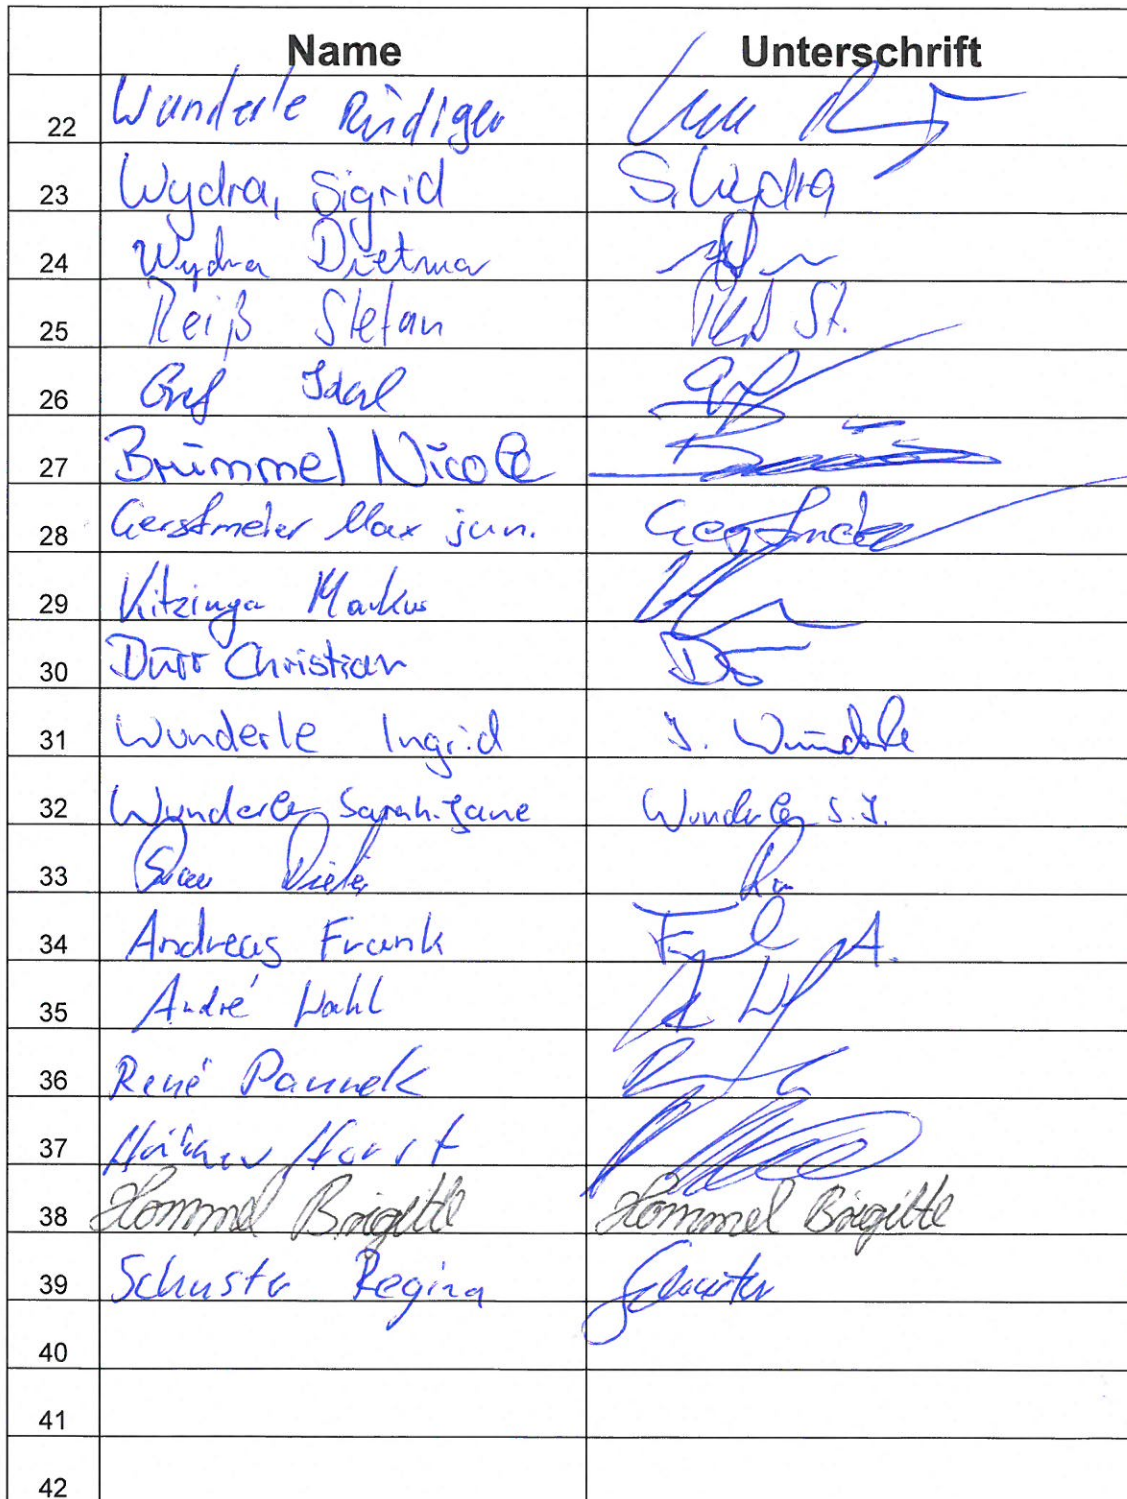 Name Unterschrift
22 Wunderle Rüdiger
23 Wydra, Sigrid S. Wydra
24 Wydra Dietmar
25 Reiß Stefan Reiß St.
26 Graf
27 Brümmel Nicole
28 Gerstmeier Max jun. Gerstmeier
29 Kitzinger Markus
30 Dürr Christian
31 Wunderle Ingrid I. Wunderle
32 Wunderle Sarah-Jane Wunderle S.J.
33 Rau Dieter Rau
34 Andreas Frank A.
35 André Wahl
36 René Pannek
37 Horst
38 Hommel Brigitte Hommel Brigitte
39 Schuster Regina Schuster
40
41
42